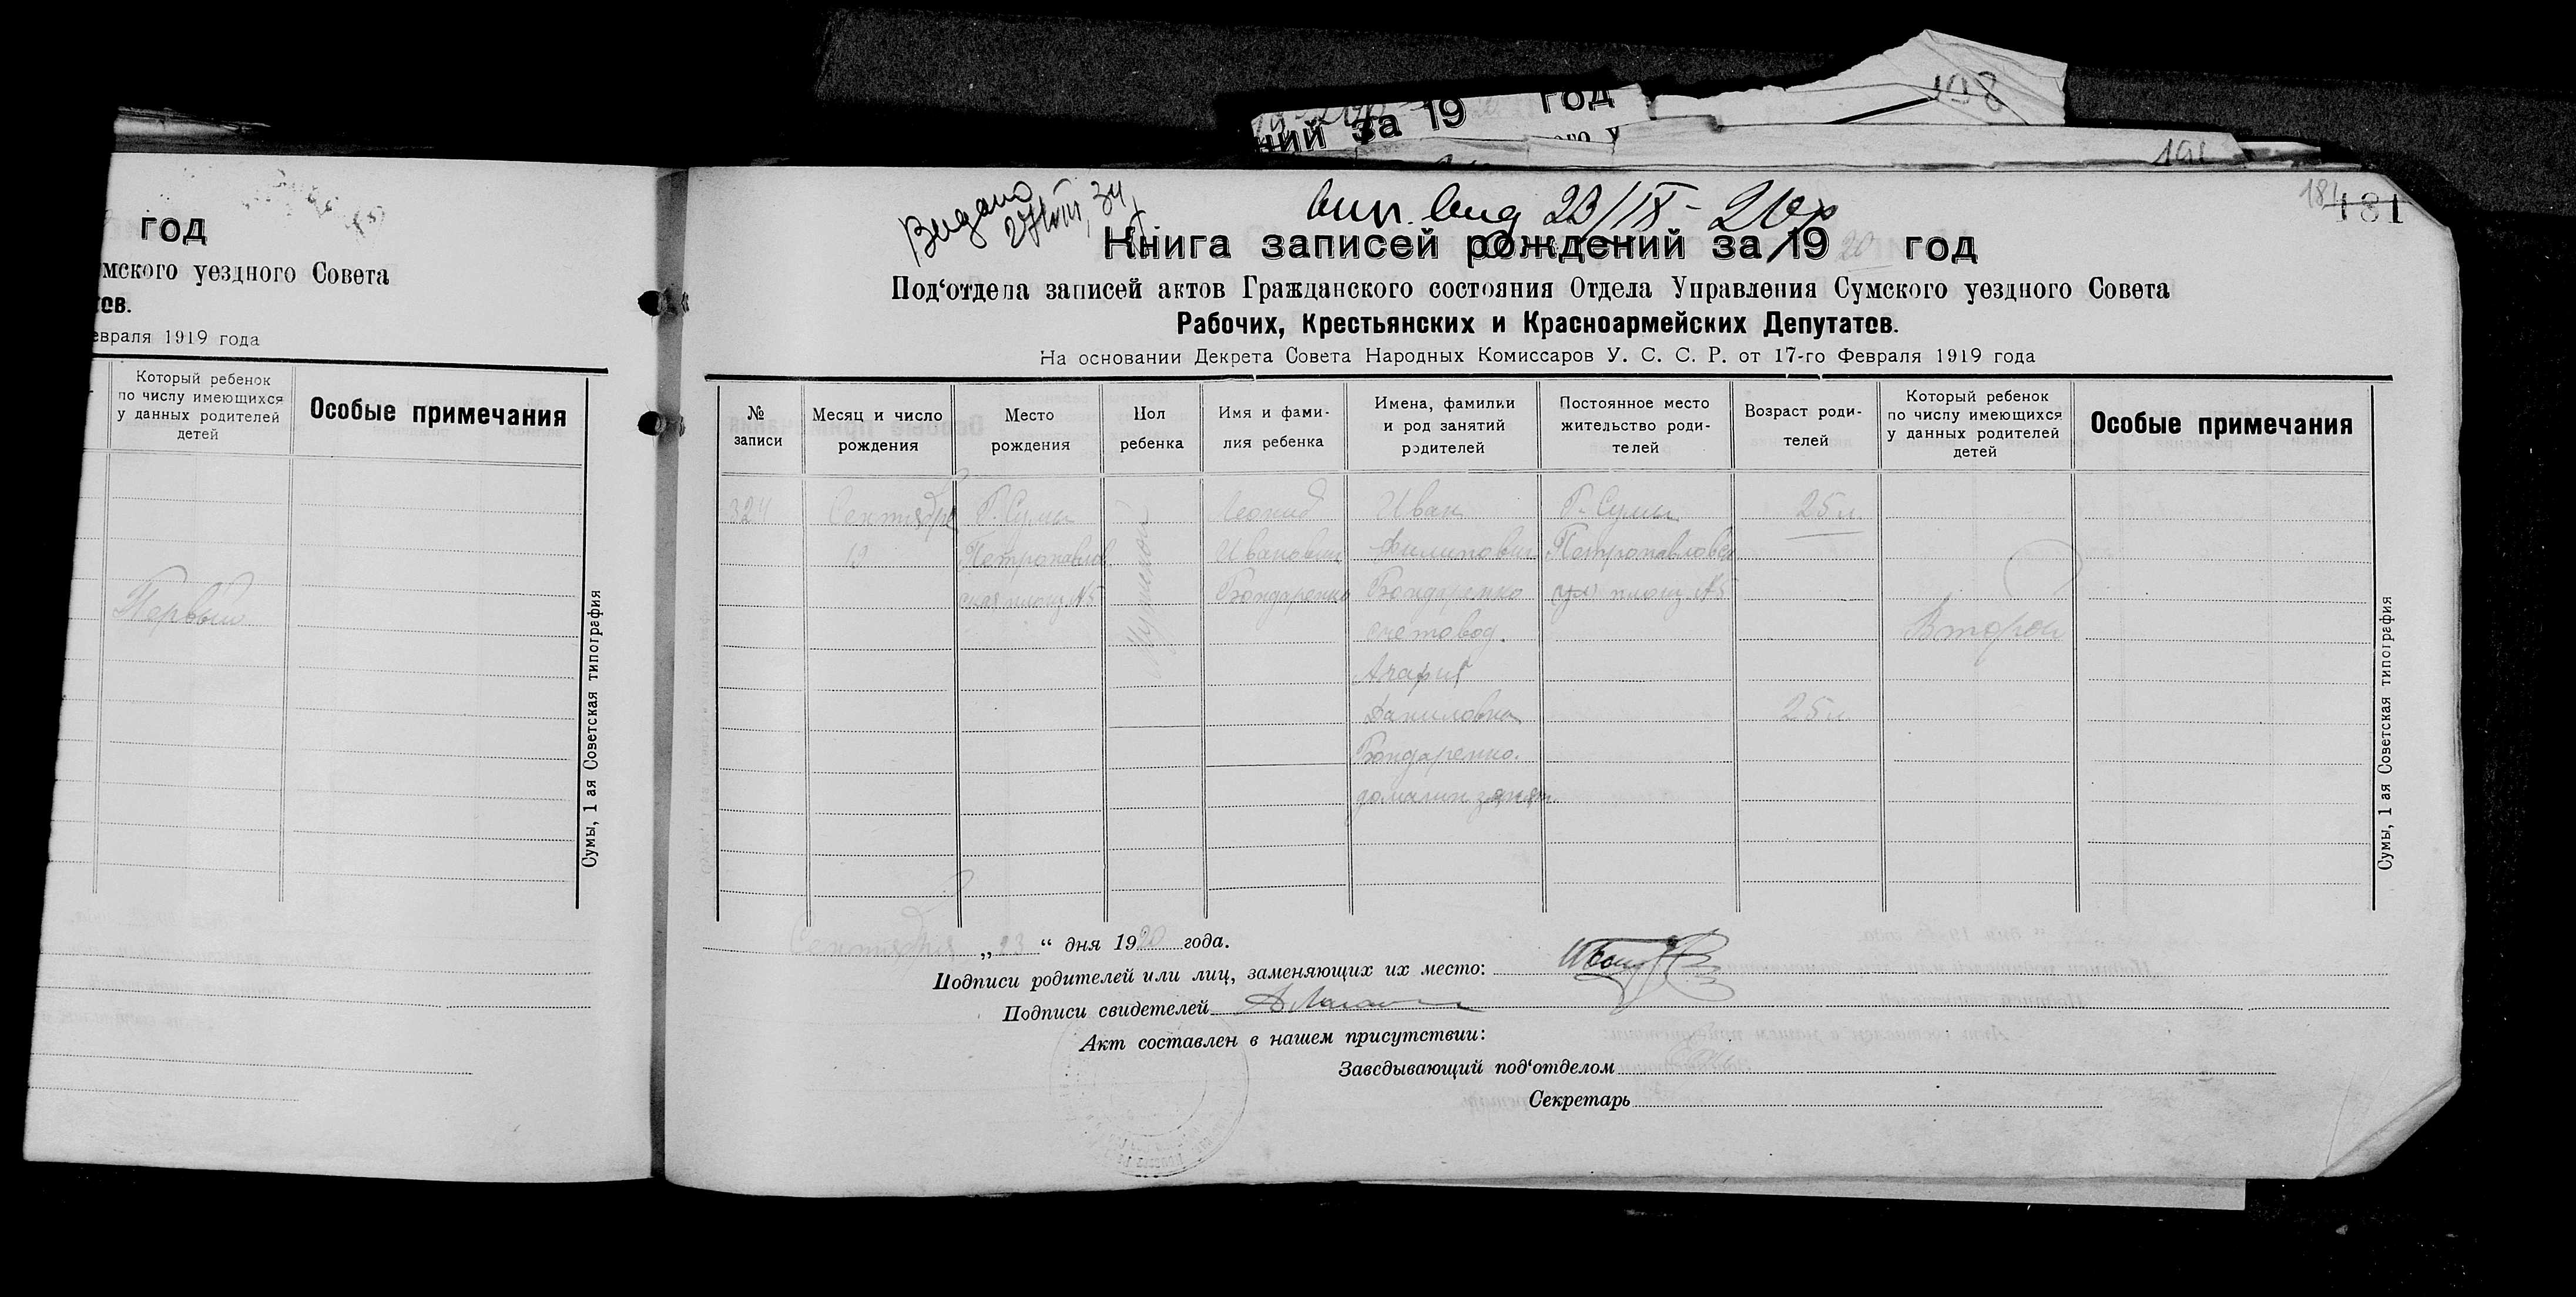 ний за 19 год
198
191
год
мского уездного Совета
тов.
евраля 1919 года
Который ребенок
по числу имеющихся
у данных родителей
детей
Особые примечания
Первый
Сумы, 1 ая Советская типография
Выдано
34
23/IX - 20 р
184
181
Книга записей рождений за 1920 год
Под‘отдела записей актов Гражданского состояния Отдела Управления Сумского уездного Совета
Рабочих, Крестьянских и Красноармейских Депутатов.
На основании Декрета Совета Народных Комиссаров У. С. С. Р. от 17-го Февраля 1919 года
№
записи
Месяц и число
рождения
Место
рождения
Пол
ребенка
Имя и фами-
лия ребенка
Имена, фамилии
и род занятий
родителей
Постоянное место
жительство роди-
телей
Возраст роди-
телей
Который ребенок
по числу имеющихся
у данных родителей
детей
Особые примечания
324
Сентября
19
Г. Сумы
Петропавлов
ская площ №5
Мужской
Леонид
Иванович
Бондаренко
Иван
Филипович
Бондаренко
счетовод.
Агафия
Даниловна
Бондаренко.
домашн. занят.
Г. Сумы
Петропавловск
площ №5
25 л.
25 л.
Второй
Сумы, 1 ая Советская типография
Сентября „23“ дня 1920 года.
Подписи родителей или лиц, заменяющих их место:
Подписи свидетелей
Акт составлен в нашем присутствии:
Заведывающий под‘отделом
Секретарь